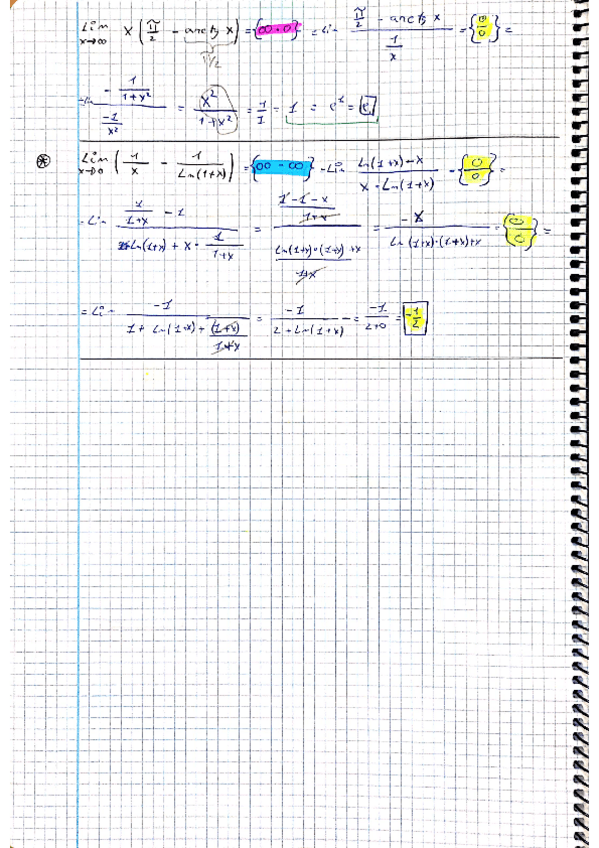 Lim x→∞ x (π/2 - arctg x) = {∞·0} = Lim (π/2 - arctg x)/(1/x) = {0/0} =
π/2
= Lim (- 1/(1+x²))/(-1/x²) = x²/(1+x²) = 1/1 = 1 = e¹ = e
⊛ Lim x→0 (1/x - 1/Ln(1+x)) = {∞ - ∞} = Lim (Ln(1+x) - x)/(x · Ln(1+x)) = {0/0} =
= Lim (1/(1+x) - 1)/(Ln(1+x) + x · 1/(1+x)) = ((1 - 1 - x)/(1+x))/((Ln(1+x)·(1+x) + x)/(1+x)) = -x/(Ln(1+x)·(1+x)+x) = {0/0} =
= Lim -1/(1 + Ln(1+x) + (1+x)/(1+x)) = -1/(2 + Ln(1+x)) = -1/(2+0) = -1/2